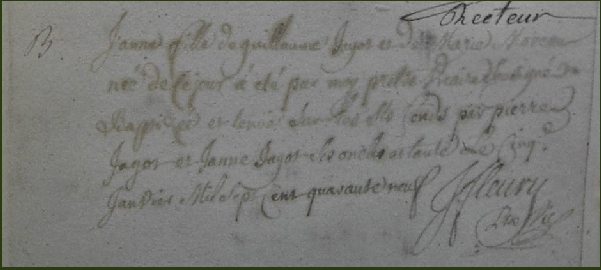 Recteur
B. Janne fille de guillaume Jagot et de Marie
née de ce jour a été par moy prêtre
Baptisée et tenüe sur les fonds par pierre
Jagot et Janne Jagot ses oncle et tante le Cinq.e
Janvier Mil sept Cent quarante neuf
J fleury